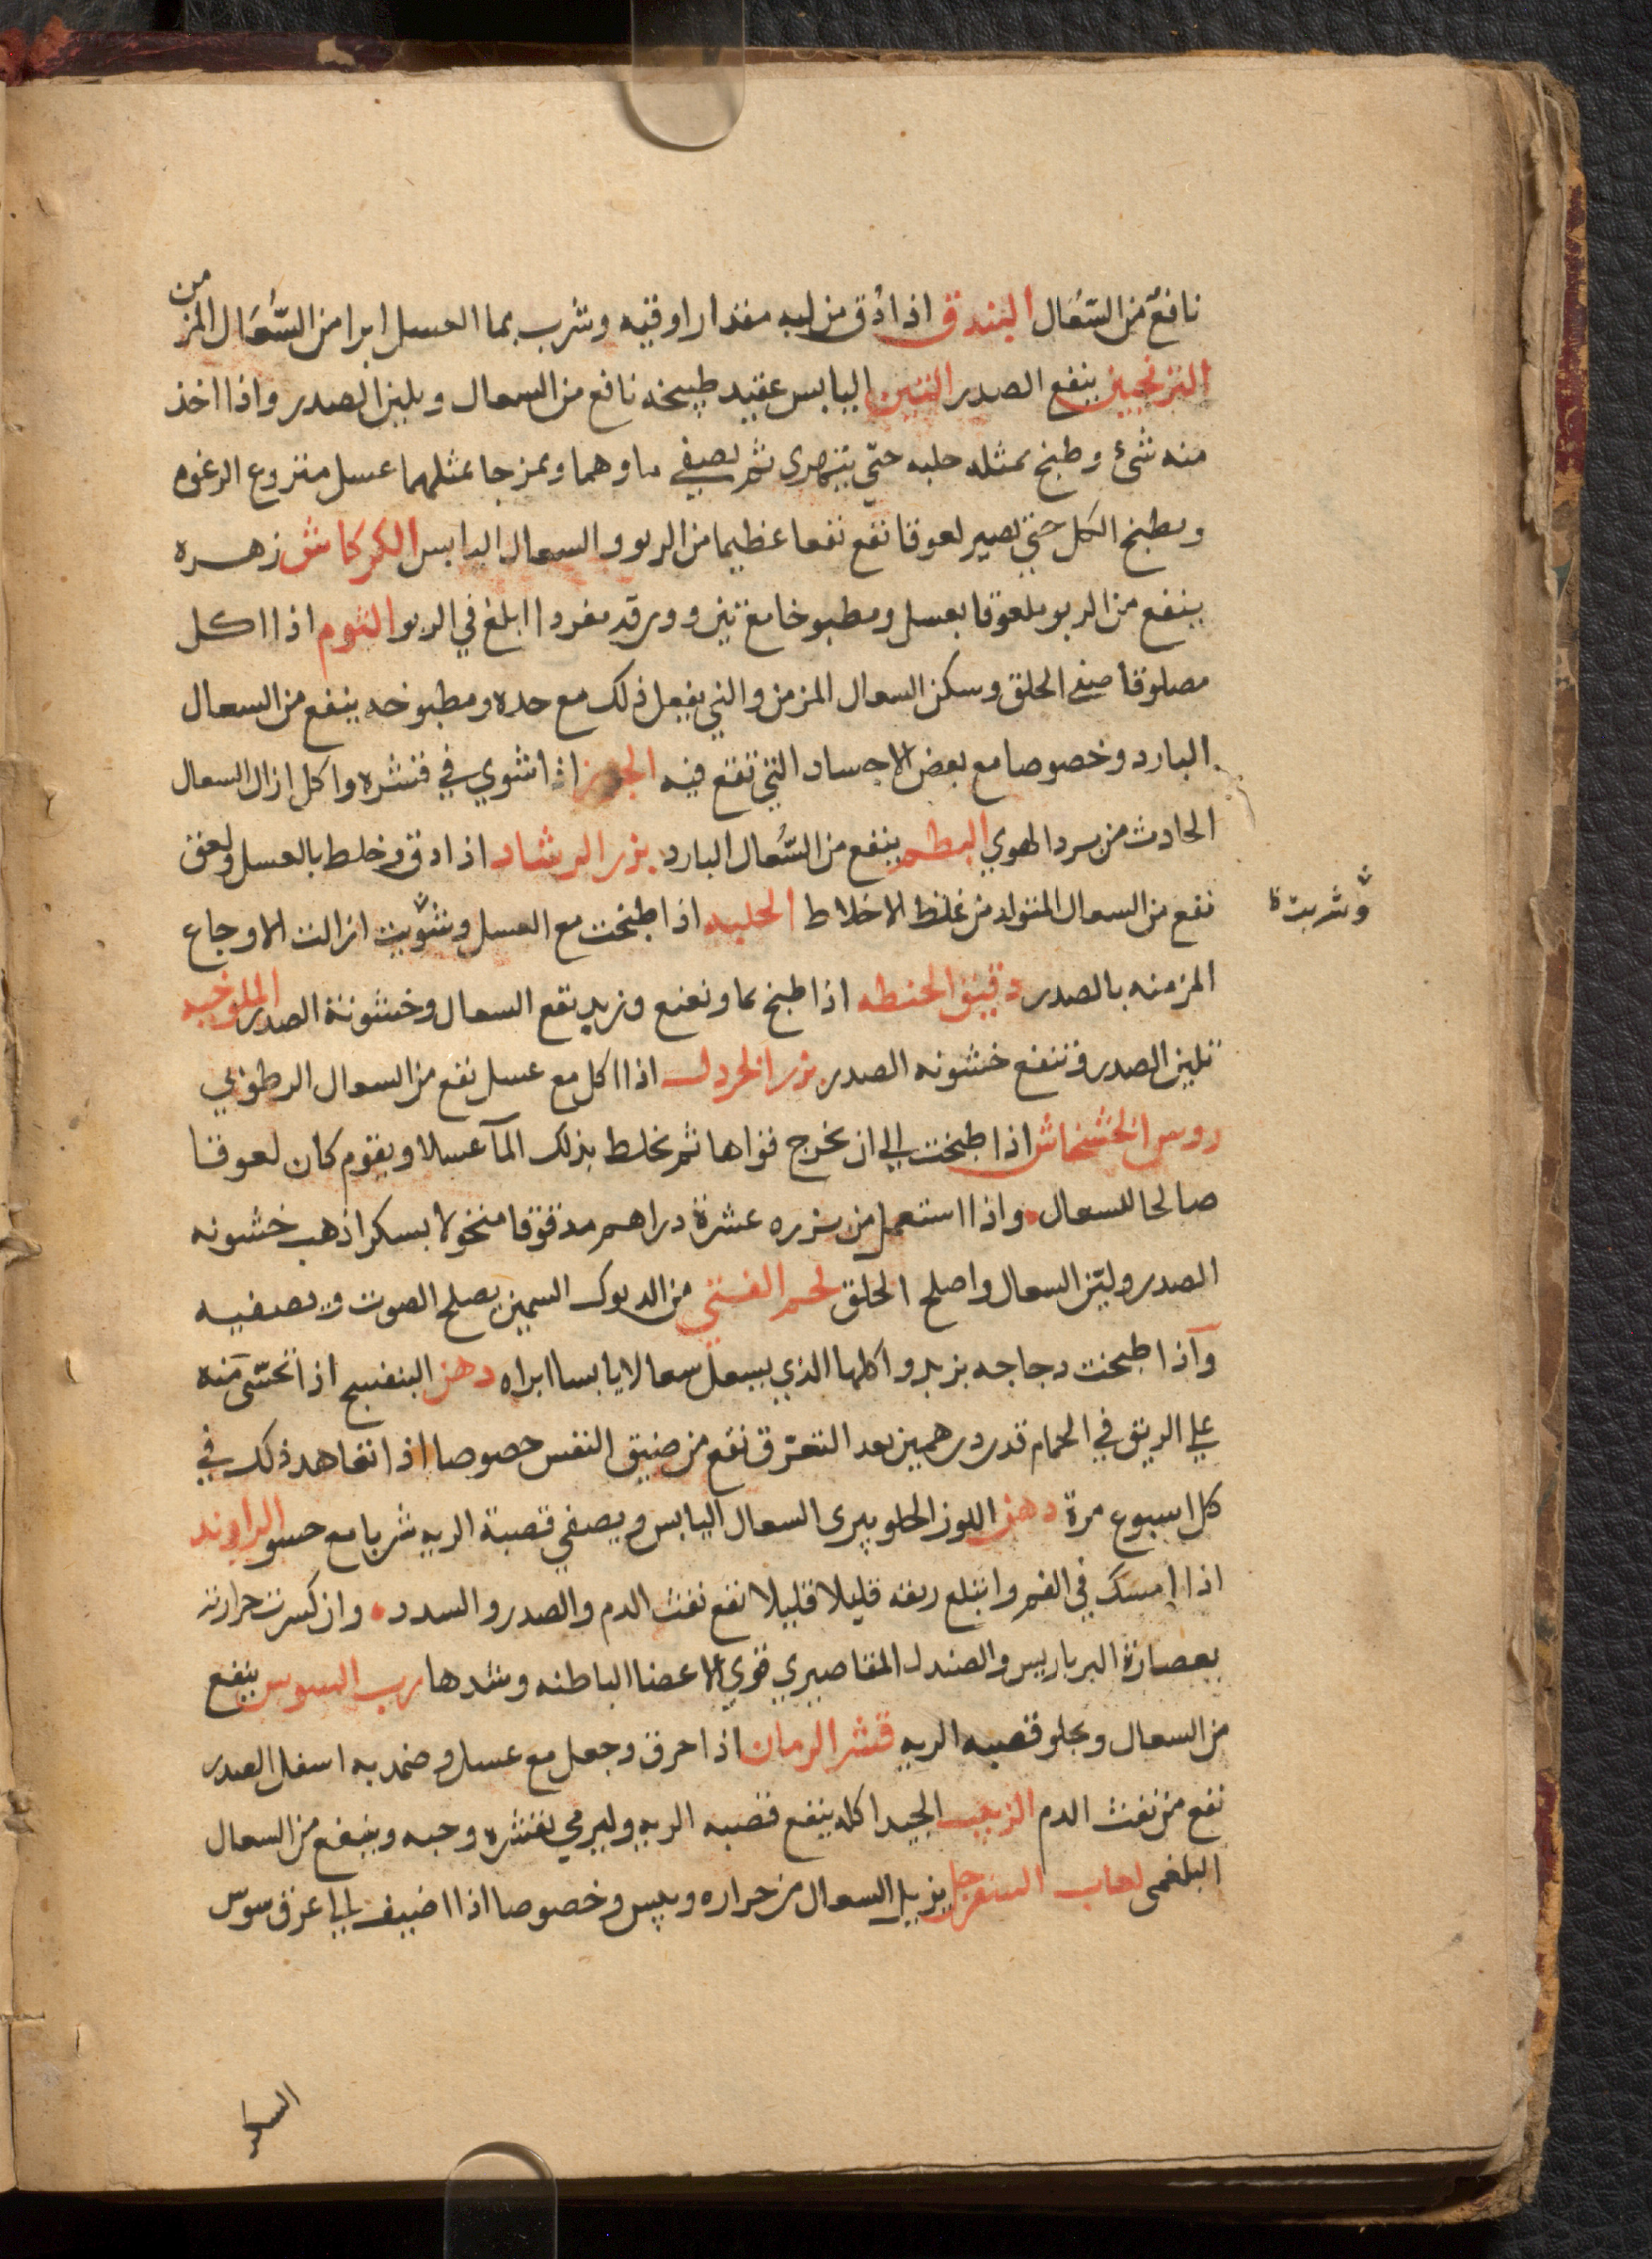 نافع من السّعال البندق اذا دُق من لبه مقدار اوقيه وشرب بما العسل ابرا من السُّعَال المزمن
الترنجبين ينفع الصدر التين اليابس عقيد طبيخه نافع من السعال ويلين الصدر واذا اخذ
منه شئ وطبخ بمثله حلبه حتّي يتهري ثم يصفي ماوهما ويمزجا بمثلهما عسل منزوع الرغوه
ويطبخ الكل حتي يصير لعوقا نفع نفعا عظيما من الربو والسعال اليابس الكركاش زهره
ينفع من الربو ملعوقا بعسل ومطبوخا مع تين وورقه مفردا ابلغ في الربو الثوم اذا اكل
مصلوقا صفي الحلق وسكن السعال المزمن والني يفعل ذلك مع حده ومطبوخه ينفع من السعال
البارد وخصوصا مع بعض الاجساد التي تقع فيه الجوز اذا شوي في قشره واكل ازال السعال
الحادث من برد الهوي البطم ينفع من السُّعال البارد بزر الرشاد اذا دق وخلط بالعسل ولعق
نفع من السعال المتولد من غلظ الاخلاط الحلبه اذا طبخت مع العسل وشوبت ازالت الاوجاع
وشربت
المزمنه بالصدر دقيق الحنطه اذا طبخ بما ونعنع وزبد نفع السعال وخشونة الصدر الملوخيه
تلين الصدر وتنفع خشونه الصدر بزر الخردل اذا اكل مع عسل نفع من السعال الرطوبي
روس الخشخاش اذا طبخت الي ان يخرج قواها ثم يخلط بذلك المآ عسلا ويقوم كان لعوقا
صالحا للسعال واذا استعمل من بزره عشرة دراهم مدقوقا منخولا بسكر اذهب خشونه
الصدر وليّن السعال واصلح الحلق لحم الفتي من الديوك السمين يصلح الصوت ويصفيه
وآذا طبخت دجاجه بزبد واكلها الذي يسعل سعالا يابسا ابراه دهن البنفسج اذا تحسّى منه
علي الريق في الحمام قدر درهمين بعد التعرّق نفع من ضيق النفس خصوصا اذا تعاهد ذلك في
كل اسبوع مرة دهن اللوز الحلو يبرى السعال اليابس ويصفي قصبة الريه شربا مع حسو الراوند
اذا امسك في الفم وابتلع ريقه قليلا قليلا نفع نفث الدم والصدر والسدد وان كسرت حرارته
بعصارة البرباريس والصندل المقاصيري قوي الاعضا الباطنه وشدها رب السوس ينفع
من السعال ويجلو قصبه الريه قشر الرمان اذا احرق وجعل مع عسل وضمد به اسفل الصدر
نفع من نفث الدم الزبيب الجيد اكله ينفع قصبه الريه وليرمي بقشره وحبه وينفع من السعال
البلغمى لعاب السفرجل يزيل السعال من حراره ويبس وخصوصا اذا اضيف اليه عرق سوس